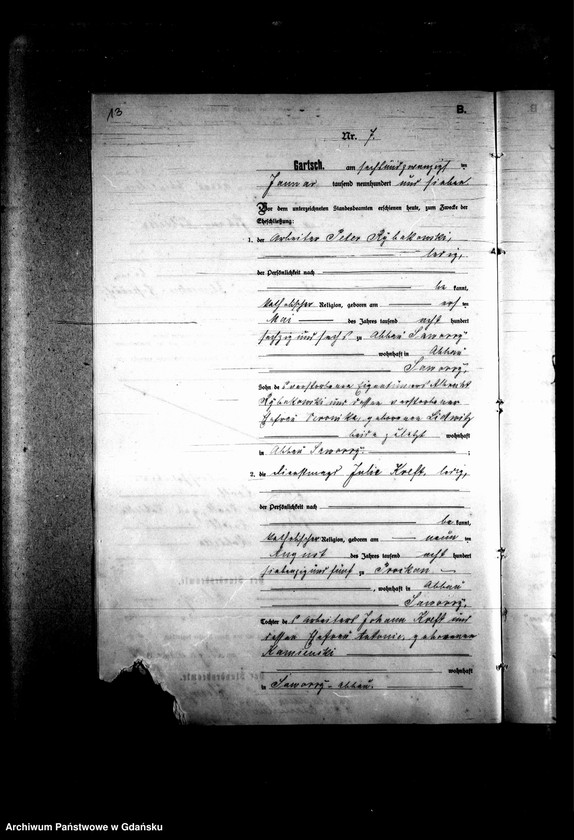 13
B.
Nr. 7.
Gartsch, am sechsundzwanzigsten
Januar tausend neunhundert und sieben
Vor dem unterzeichneten Standesbeamten erschienen heute, zum Zwecke der
Eheschließung:
1. der Arbeiter Peter Rybakowski,
ledig,
der Persönlichkeit nach
be kannt,
katholischer Religion, geboren am ersten
Mai des Jahres tausend acht hundert
sechzig und sechs zu Abbau Saworry
wohnhaft in Abbau
Saworry,
Sohn des verstorbenen Eigentümers Albrecht
Rybakowski und dessen verstorbener
Ehefrau Veronika, geborenen
beide zuletzt wohnhaft
in Abbau Saworry. ;
2. die Dienstmagd Julie Kreft, ledig,
der Persönlichkeit nach
be kannt,
katholischer Religion, geboren am neunten
August des Jahres tausend acht hundert
siebenzig und fünf zu Prockau
, wohnhaft in Abbau
Saworry,
Tochter des Arbeiters Johann Kreft und
dessen Ehefrau Antonie, geborenen
Kamienski
wohnhaft
in Saworry-Abbau.
Archiwum Państwowe w Gdańsku